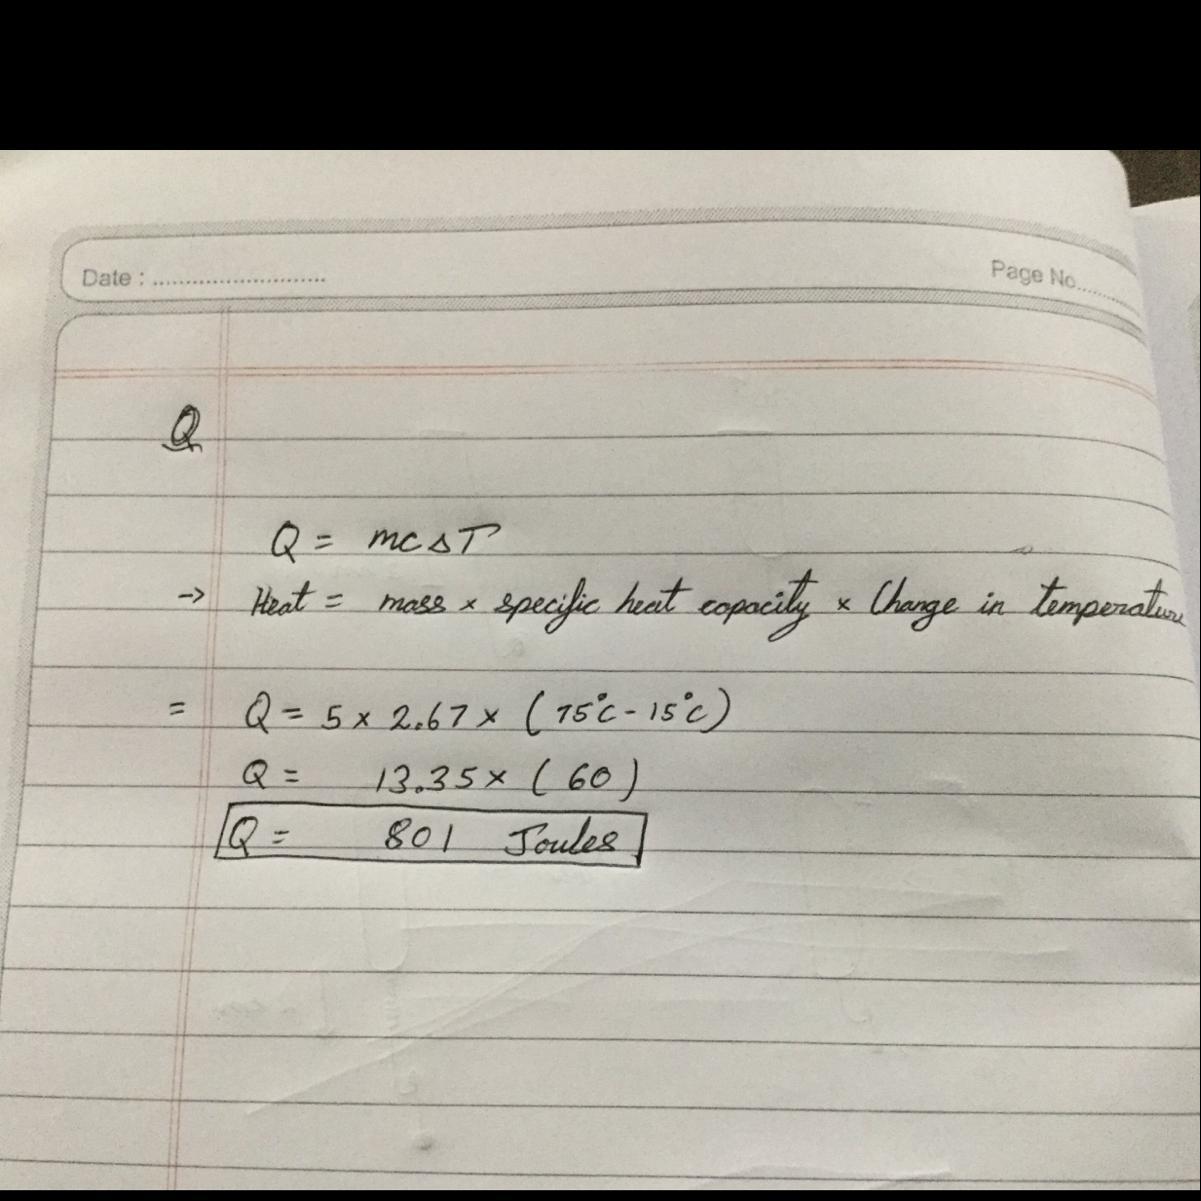 Date : ..........................
Page No.........
Q
Q = mc∆T
-> Heat = mass × specific heat capacity × Change in temperature
= Q = 5 × 2.67 × ( 75°c - 15°c)
Q = 13.35 × ( 60 )
Q = 801 Joules